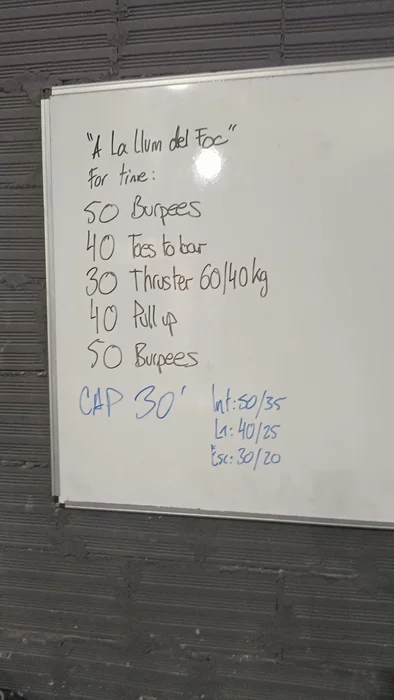 "A La Llum del Foc"
For time:
50 Burpees
40 Toes to bar
30 Thruster 60/40kg
40 Pull up
50 Burpees
CAP 30'
Int: 50/35
In: 40/25
Esc: 30/20